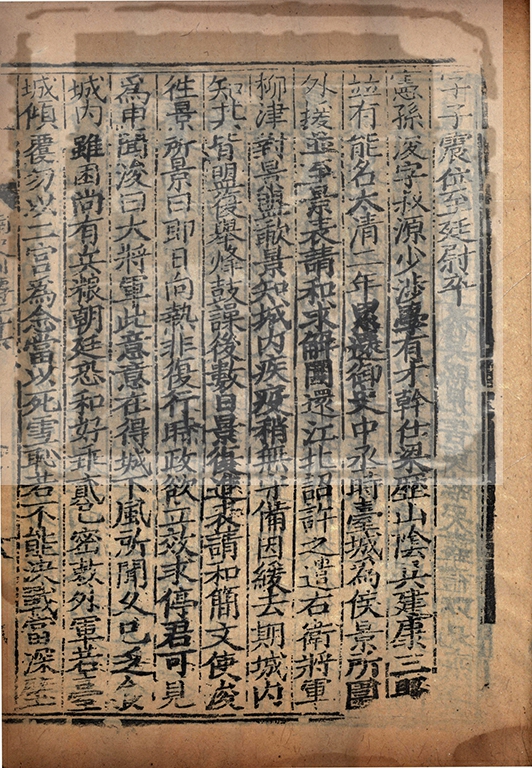 字子震位至廷尉卒
憲孫浚字叔源少涉學有才幹仕梁歷山陰吳建康三縣
並有能名太清二年累遷御史中丞時臺城為侯景所圍
外援並至景表請和求解圍還江北詔許之遣右衛將軍
柳津對景盟歃景知城內疾疫稍無守備因緩去期城內
知其背盟復舉烽鼓譟後數日景復進表請和簡文使浚
往景所景曰即日向熱非復行時政欲立效求停君可見
為申聞浚曰大將軍此意意在得城下風所聞久已乏食
城內雖困尚有兵糧朝廷恐和好乖貳已密敕外軍若臺
城傾覆勿以二宮為念當以死雪恥若不能決戰當深壁